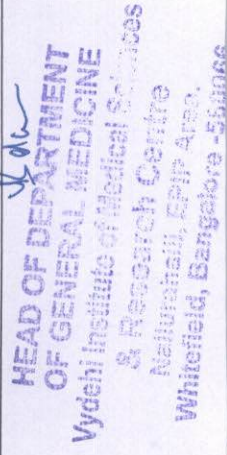 HEAD OF DEPARTMENT
OF GENERAL MEDICINE
Vydehi Institute of Medical Sciences
& Research Centre
Nallurahalli, EPIP Area,
Whitefield, Bangalore -560066